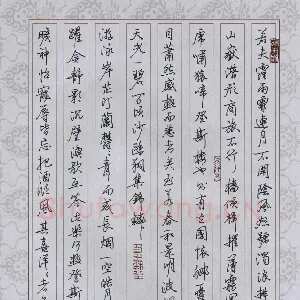 若夫霪雨霏連月不開陰風怒號濁浪排
山嶽潛形商旅不行檣傾楫摧薄暮
虎嘯猿啼登斯樓也則有去國懷鄉
目蕭然感極而悲者矣至若春和景明波
天光一碧萬頃沙鷗翔集錦鱗
游泳岸芷汀蘭鬱青而或長煙一空皓月
躍金靜影沉璧漁歌互答此樂何極登斯
曠神怡寵辱皆忘把酒臨風其喜洋洋者